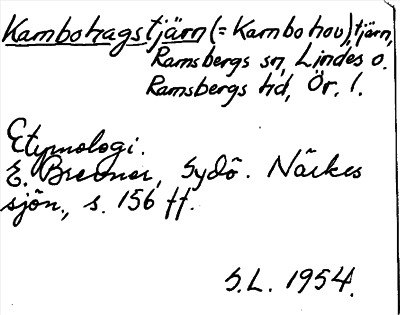 Kambohagstjärn (= Kambohov), tjärn,
Ramsbergs sn, Lindes o.
Ramsbergs hd, Ör. l.
Etymologi.
E. Brevner, Sydö. Närkes
sjön., s. 156 ff.
S.L. 1954.